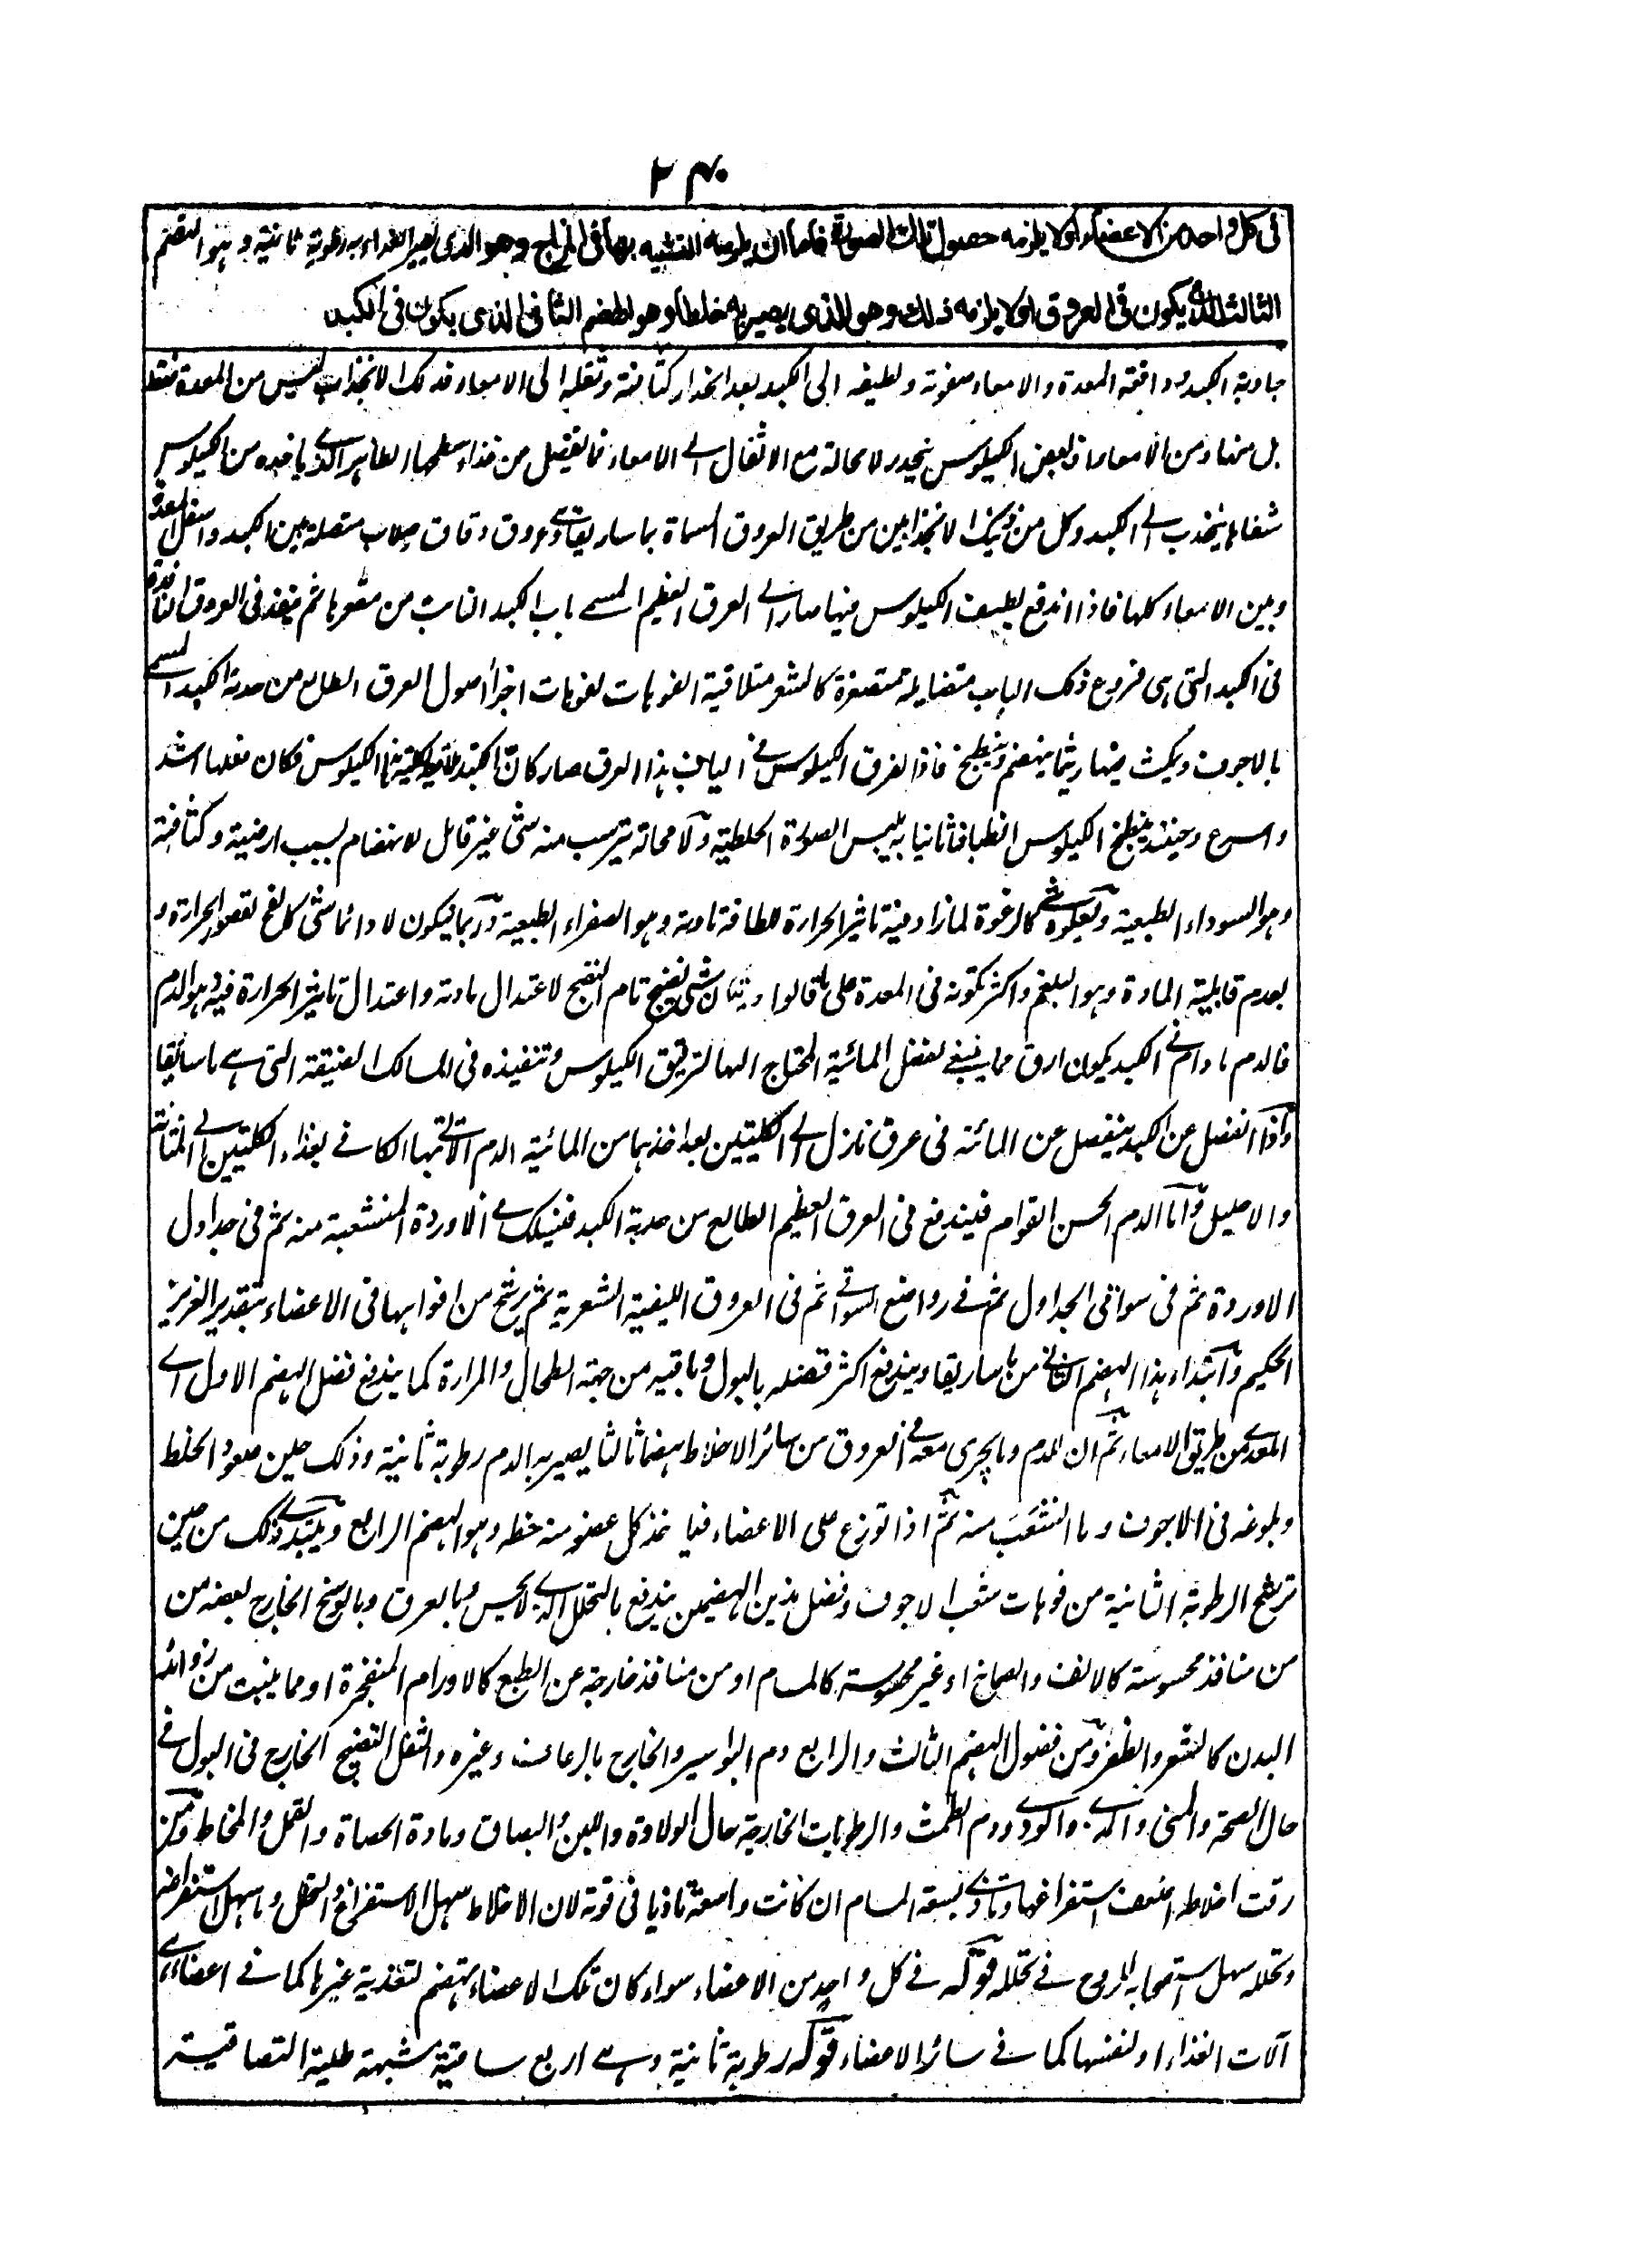 ٢٤٠
فى كل واحد من الاعضاء او لا يلزمه حصول تلك الصورة فاما ان يلزمه التشبيه بها فى المزاج وهو الذى يصير الغذاء به رطوبة ثانية وهو الهضم
الثالث الذى يكون فى العروق او لا يلزمه ذلك وهو الذى يصير به خلطا وهو الهضم الثانى الذى يكون فى الكبد
جاذبة الكبد ودافعة المعدة والامعاء صفوته ولطيفه الى الكبد بعد انحدار كثافته وثقله الى الامعاء فذلك الانجذاب ليس من المعدة فقط
بل منها ومن الامعاء اذ بعض الكيلوس ينحدر لا محالة مع الاثفال الى الامعاء فما يفضل من غذاء سطحها الظاهر الذى ياخذه من الكيلوس
ينجذب الى الكبد وكل من ذينك الانجذابين من طريق العروق المسماة بماساريقا وهى عروق دقاق صلاب متصلة بين الكبد واسفل المعدة
وبين الامعاء كلها فاذا اندفع لطيف الكيلوس منها صار الى العرق العظيم المسمى باب الكبد النابت من مقعرها ثم ينفذ فى العروق النافذة
فى الكبد التى هى فروع ذلك الباب متضايلة متصغرة كالشعر متلاقية الفوهات لفوهات اجزاء اصول العرق الطالع من حدبة الكبد المسمى
بالاجوف ويمكث فيها ريثما ينهضم وينطبخ فاذا تفرق الكيلوس فى الياف هذا العرق صار كان الكبد ملاقية بكليتها الكيلوس فكان فعلها اشد
واسرع وحينئذ ينطبخ الكيلوس انطباخا ثانيا به يلبس الصورة الخلطية ولا محالة يترسب منه شئ غير قابل للانهضام لسبب ارضية وكثافة
وهو السوداء الطبيعية ويعلوه شئ كالرغوة لما زاد فيه تاثير الحرارة للطافة مادته وهو الصفراء الطبيعية وربما يكون لا دائما شئ كل فج لقصور الحرارة و
لعدم قابلية المادة وهو البلغم واكثر تكونه فى المعدة على ما قالوا وشئ نضيج تام النضج لاعتدال مادته واعتدال تاثير الحرارة فيه وهو الدم
فالدم ما دام فى الكبد يكون ارق مما ينبغى لفضل المائية المحتاج اليها لترقيق الكيلوس وتنفيذه فى المسالك الضيقة التى هى ماساريقا
واذا انفصل عن الكبد ينفصل عن المائية فى عرق نازل الى الكليتين بعد اخذهما من المائية الدم الكافى لغذاء الكليتين الى المثانة
والاحليل واما الدم الحسن القوام فيندفع فى العرق العظيم الطالع من حدبة الكبد فيسلك فى الاوردة المنشعبة منه ثم فى جداول
الاوردة ثم فى سواقى الجداول ثم فى رواضع السواقى ثم فى العروق الليفية الشعرية ثم يرشح من افواهها فى الاعضاء بتقدير العزيز
الحكيم وابتداء هذا الهضم الثانى من ماساريقا ويندفع اكثر فضله بالبول وباقيه من جهة الطحال والمرارة كما يندفع فضل الهضم الاول اى
المعدى من طريق الامعاء ثم ان للدم وما يجرى معه فى العروق من سائر الاخلاط هضما ثالثا يصير به الدم رطوبة ثانية وذلك حين صعود الخلط
وبلوغه فى الاجوف وما انشعب منه ثم اذا توزع على الاعضاء فياخذ كل عضو منه حظه وهو الهضم الرابع ويبتدى ذلك من حين
ترشح الرطوبة الثانية من فوهات شعب الاجوف وفضل هذين الهضمين يندفع بالتحلل الذى لا يحس وبالعرق وبالوسخ الخارج بعضه من
من منافذ محسوسة كالانف والصماخ او غير محسوسة كالمسام او من منافذ خارجة عن الطبع كالاورام المنفجرة او مما ينبت من زوائد
البدن كالشعر والظفر ومن فضول الهضم الثالث والرابع دم البواسير والخارج بالرعاف وغيره والثفل النضيج الخارج فى البول فى
حال الصحة والمنى والمذى والودى ودم الطمث والرطوبات الخارجة حال الولادة واللبن والبصاق ومادة الحصاة والقمل والمخاط ومن
رقت اخلاطه اضعف استفراغها وتاذى بسعة المسام ان كانت واسعة تاذيا فى قوته لان الاخلاط سهل الاستفراغ والتحلل وما سهل استفراغه
وتحلله سهل استصحابه للروح فى تحلله قوله فى كل واحد من الاعضاء سواء كان تلك الاعضاء تهضم لتغذية غيرها كما فى اعضاء هى
آلات الغذاء او لنفسها كما فى سائر الاعضاء قوله رطوبة ثانية وهى اربع ساقية مشبهة طلية التصاقية